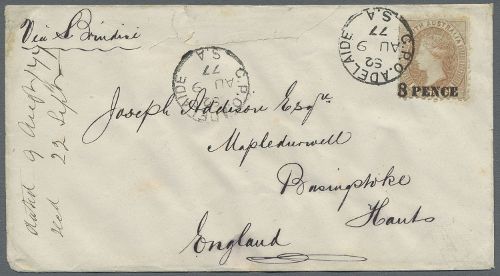 Via Brindisi
G.P.O. ADELAIDE
S2
AU 9
77
S.A
SOUTH AUSTRALIA
8 PENCE
G.P.O. ADELAIDE
AU 9
77
S.A
Joseph Addison Esqre
Mapledurwell
Basingstoke
Hants
England
dated 9 Augt/77
recd 22 Sept